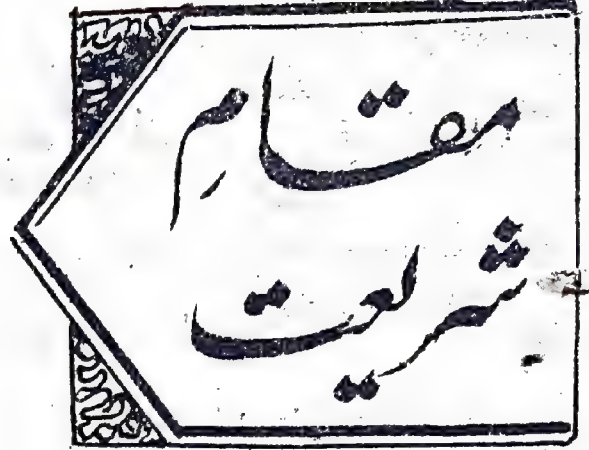 مقامِ
شریعت